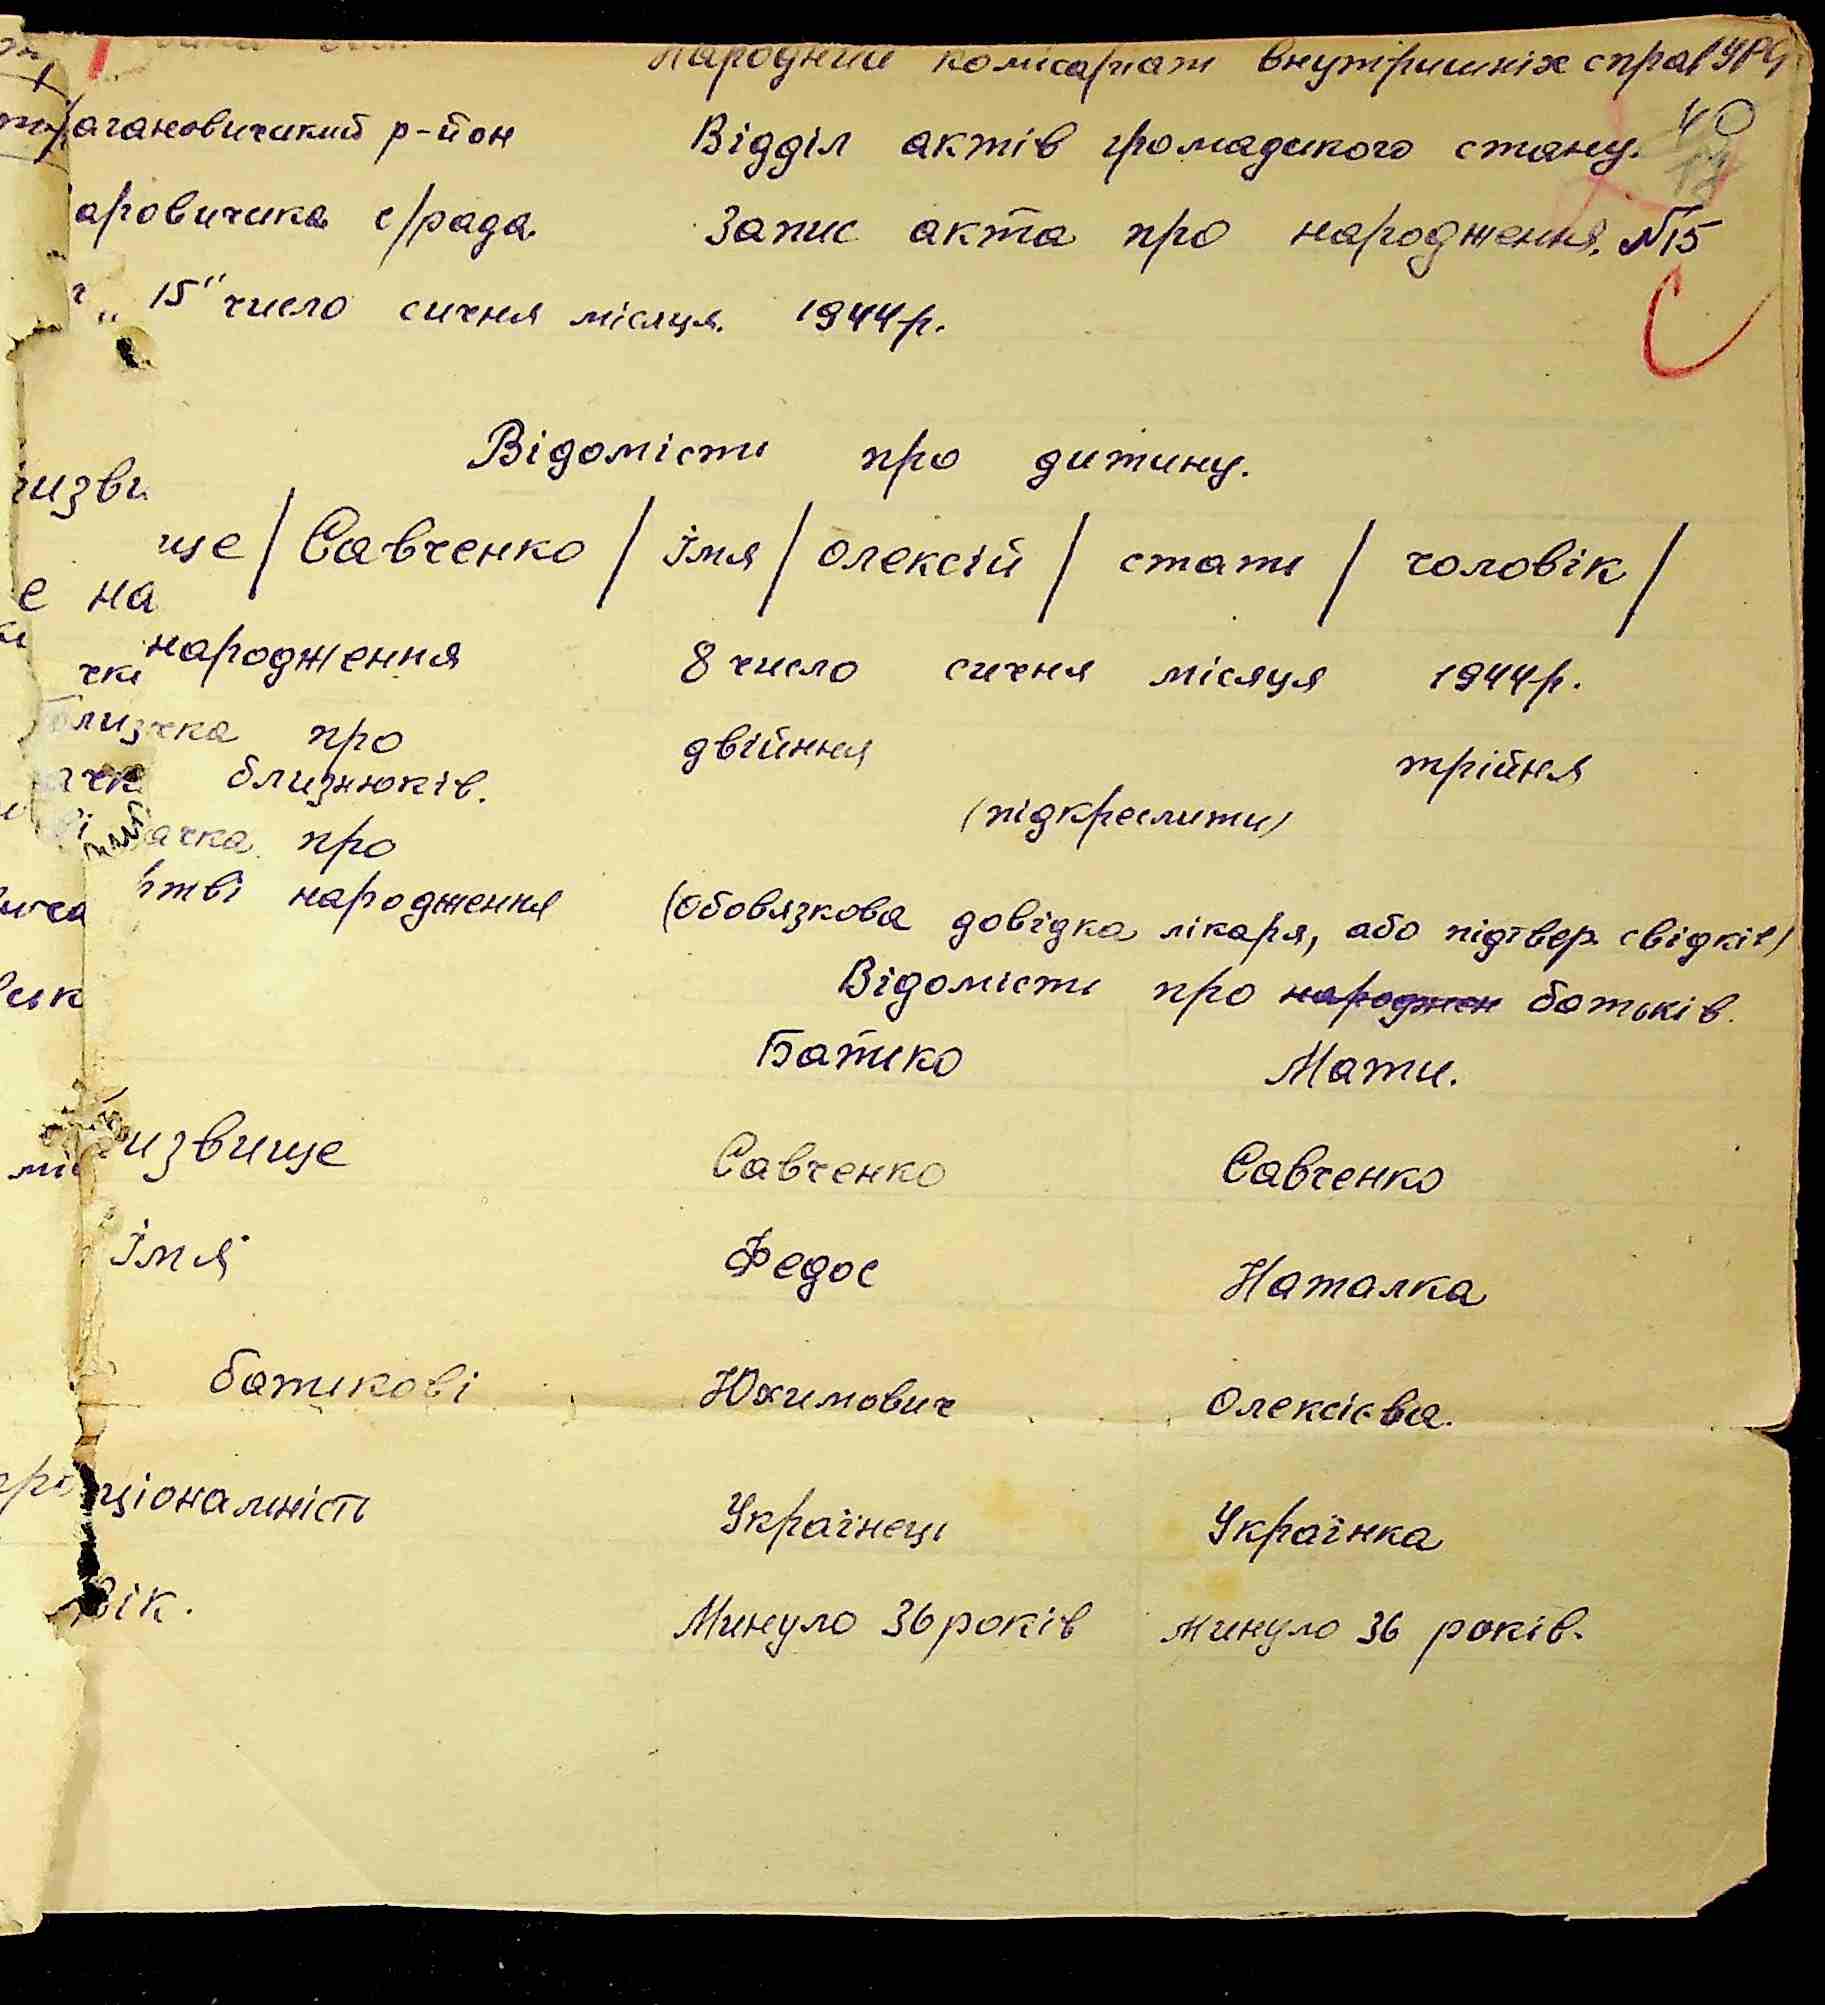 Народний комісаріат внутрішніх справ УРС
агановичский р-йон Відділ актів громадського стану.
аровичська с/рада Запис акта про народження. №15
"15" число січня місяця. 1944р.
40
Відомість про дитину.
ще / Савченко / Імя / Олексій / стать / чоловік /
народження 8 число січня місяця 1944р.
про двійння трійня
близнюків.
(підкреслити)
ачка про
тві народження (обовязкова довідка лікаря, або підтвер. свідків)
Відомість про народжен батьків.
Батько Мати.
извище Савченко Савченко
Імя Федос Наталка
батькові Юхимович Олексієва.
ціональність Українець Українка
Вік. Минуло 36 років Минуло 36 років.